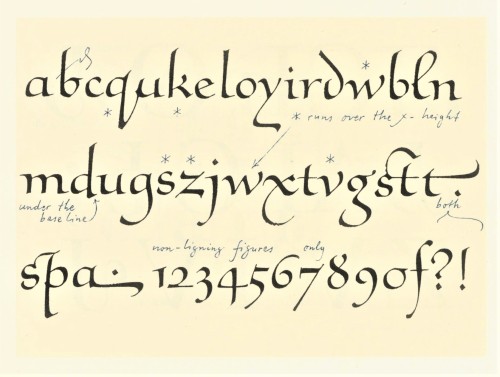 abcqukeloyirdwbln
* runs over the x-height
mdugszjwxtvgstt.
under the
baseline
both
non-ligning figures only
spa. 1234567890f?!